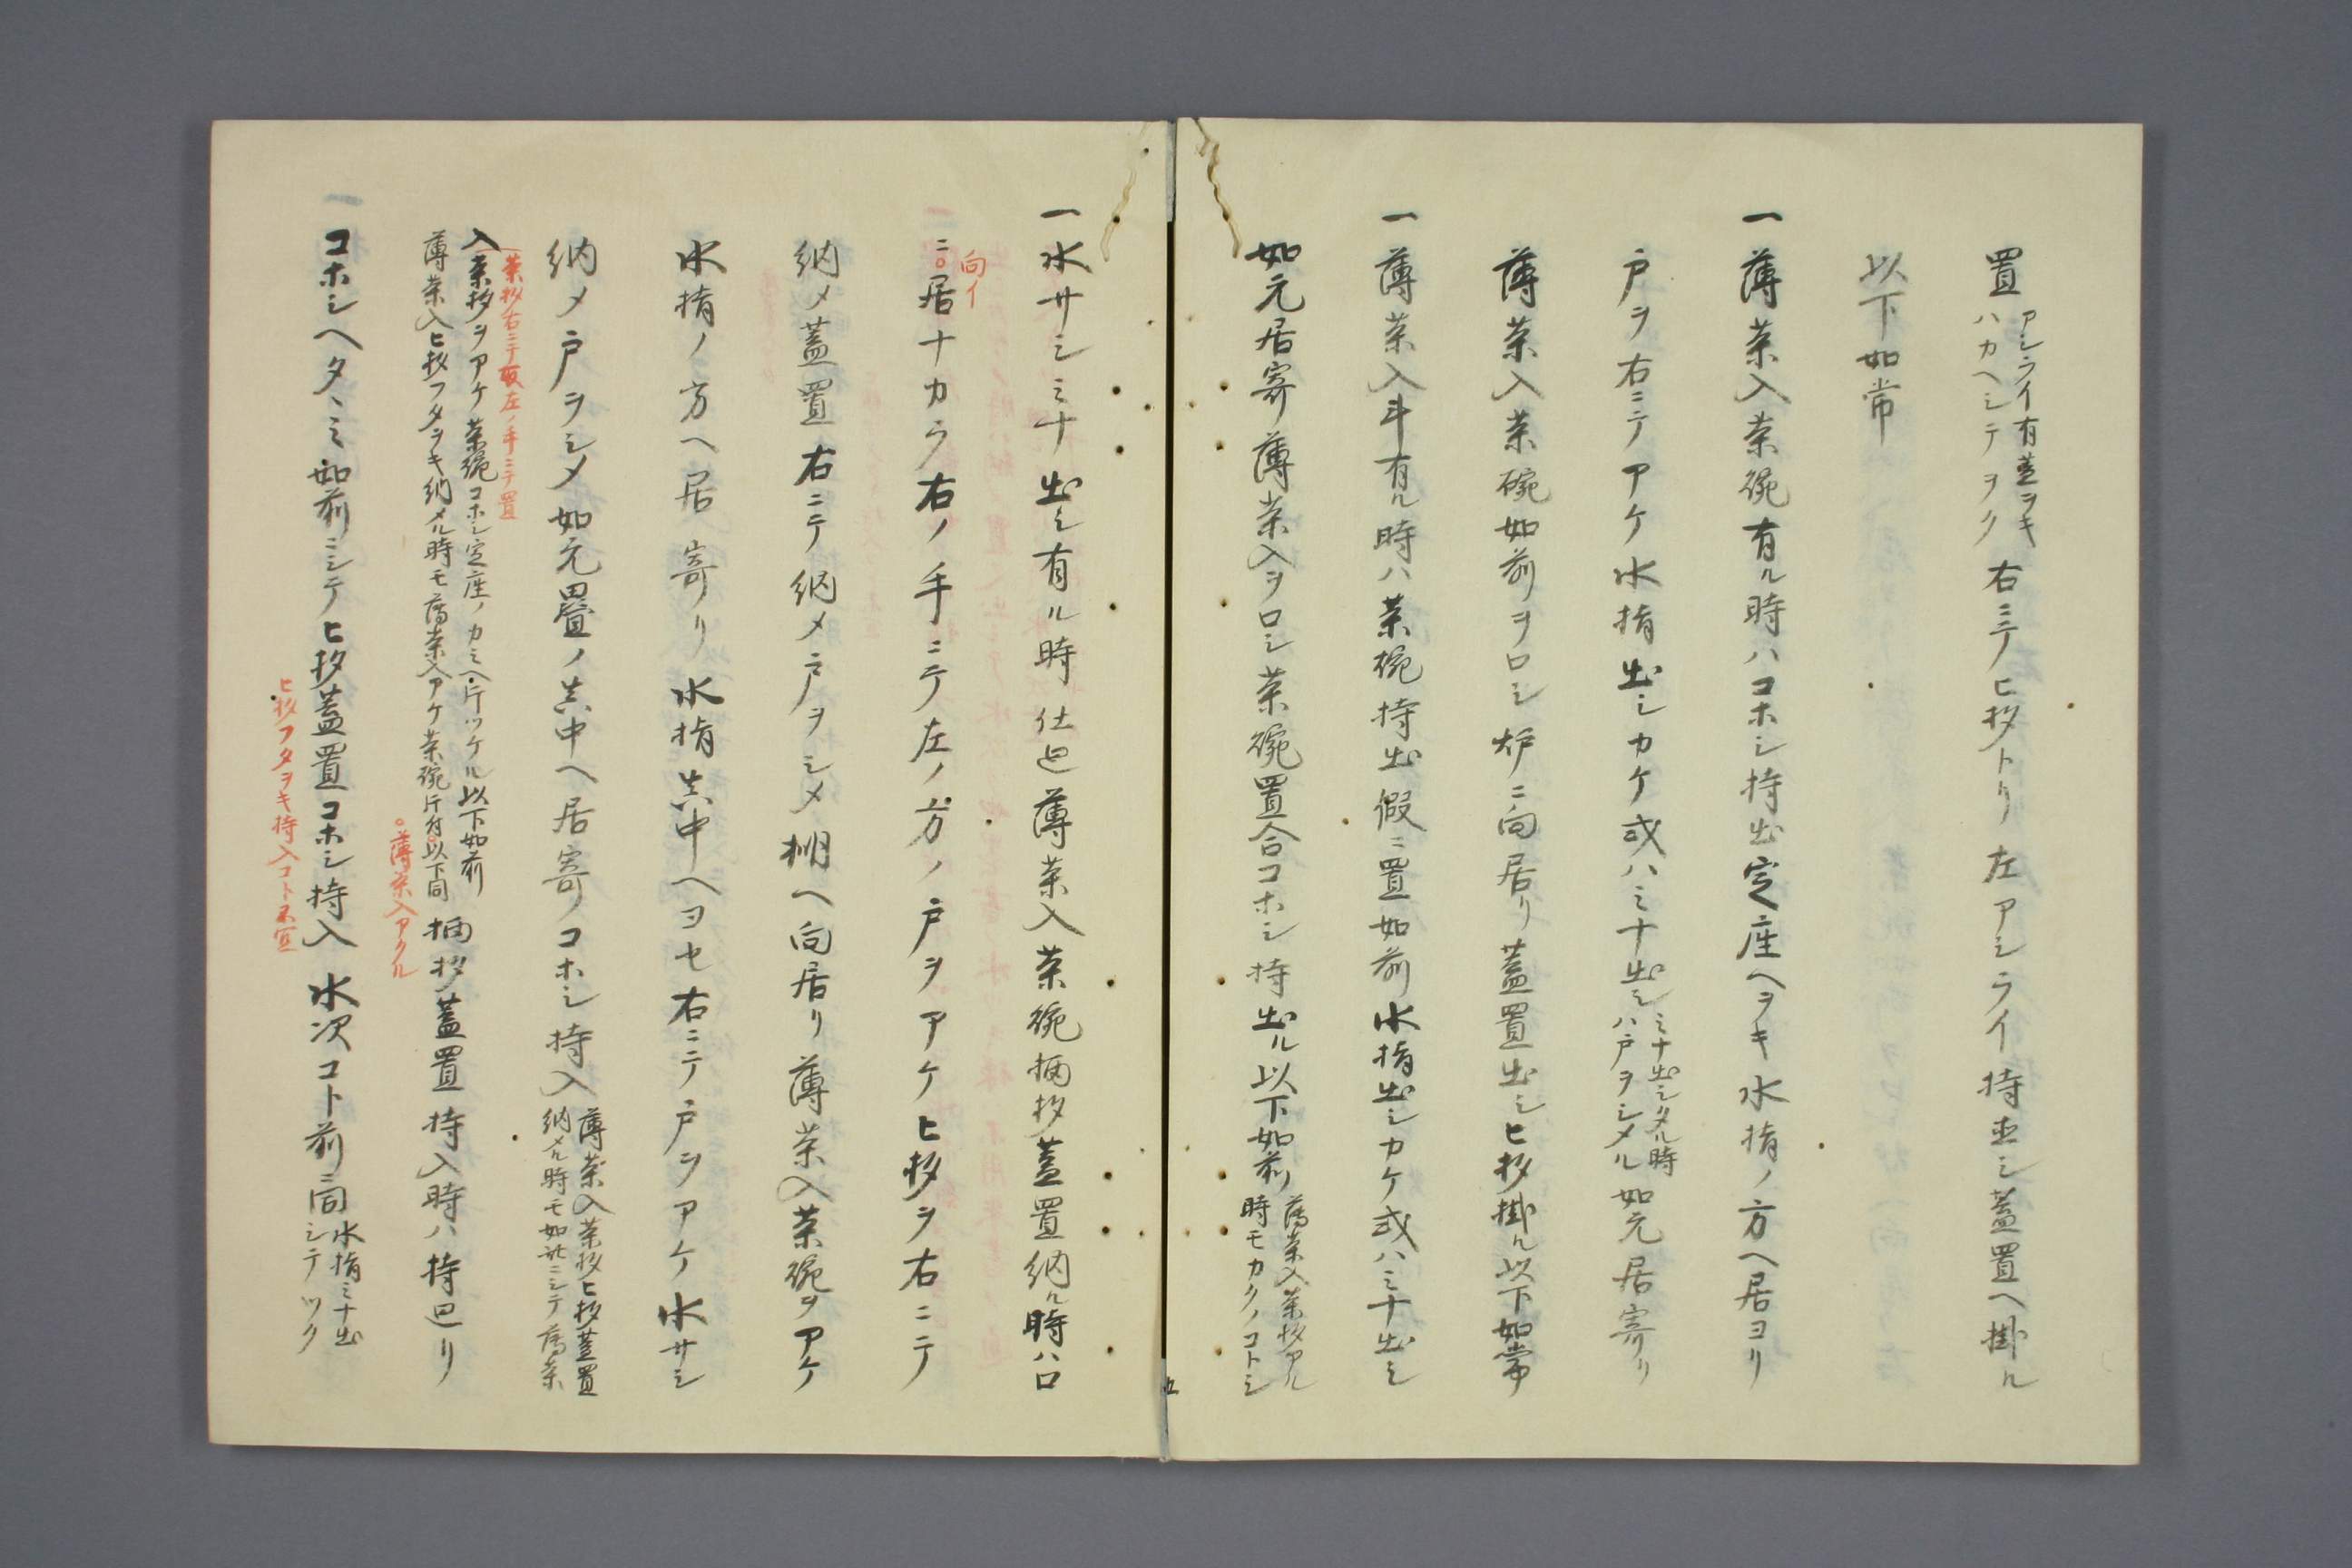 置
アシライ有蓋ヲキ
ハカヘシテヲク
右ニテヒ抄トリ左アシライ持出シ蓋置ヘ掛ル
以下如常
一薄茶入茶碗有ル時ハコホシ持出定座ヘヲキ水指ノ方ヘ居ヨリ
戸ヲ右ニテアケ水指出シカケ或ハミナ出シ
ミナ出シタル時
ハ戸ヲシメル
如元居寄リ
薄茶入茶碗如前ヲロシ炉ニ向居リ蓋置出シヒ抄掛ル以下如常
一薄茶入斗有ル時ハ茶碗持出假ニ置如前水指出シカケ或ハミナ出シ
如元居寄薄茶入ヲロシ茶碗置合コホシ持出ル以下如前
薄茶入茶抄アル
時モカクノコトシ
一水サシミナ出シ有ル時仕廻薄茶入茶碗柄抄蓋置納ル時ハロ
向イ
ニ○居ナカラ右ノ手ニテ左ノ方ノ戸ヲアケヒ抄ヲ右ニテ
納メ蓋置右ニテ納メ戸ヲシメ棚ヘ向居リ薄茶入茶碗ヲアケ
水指ノ方ヘ居寄リ水指真中ヘヨセ右ニテ戸ヲアケ水サシ
納メ戸ヲシメ如元畳ノ真中ヘ居寄ノコホシ持入
薄茶入茶抄ヒ抄蓋置
納メル時モ如此ニシテ薄茶
茶抄右ニテ取左ノ手ニテ置
入茶抄ヲアケ茶碗コホシ定座ノカミヘ片ツケル以下如前
薄茶入ヒ抄フタヲキ納メル時モ薄茶入アケ茶碗片付○以下同
○薄茶入アクル
柄抄蓋置持入時ハ持廻リ
一コホシヘタヽミ如前ニシテヒ抄蓋置コホシ持入水次コト前ニ同
水指ミナ出
シテツク
ヒ抄フタヲキ持入コト不宜